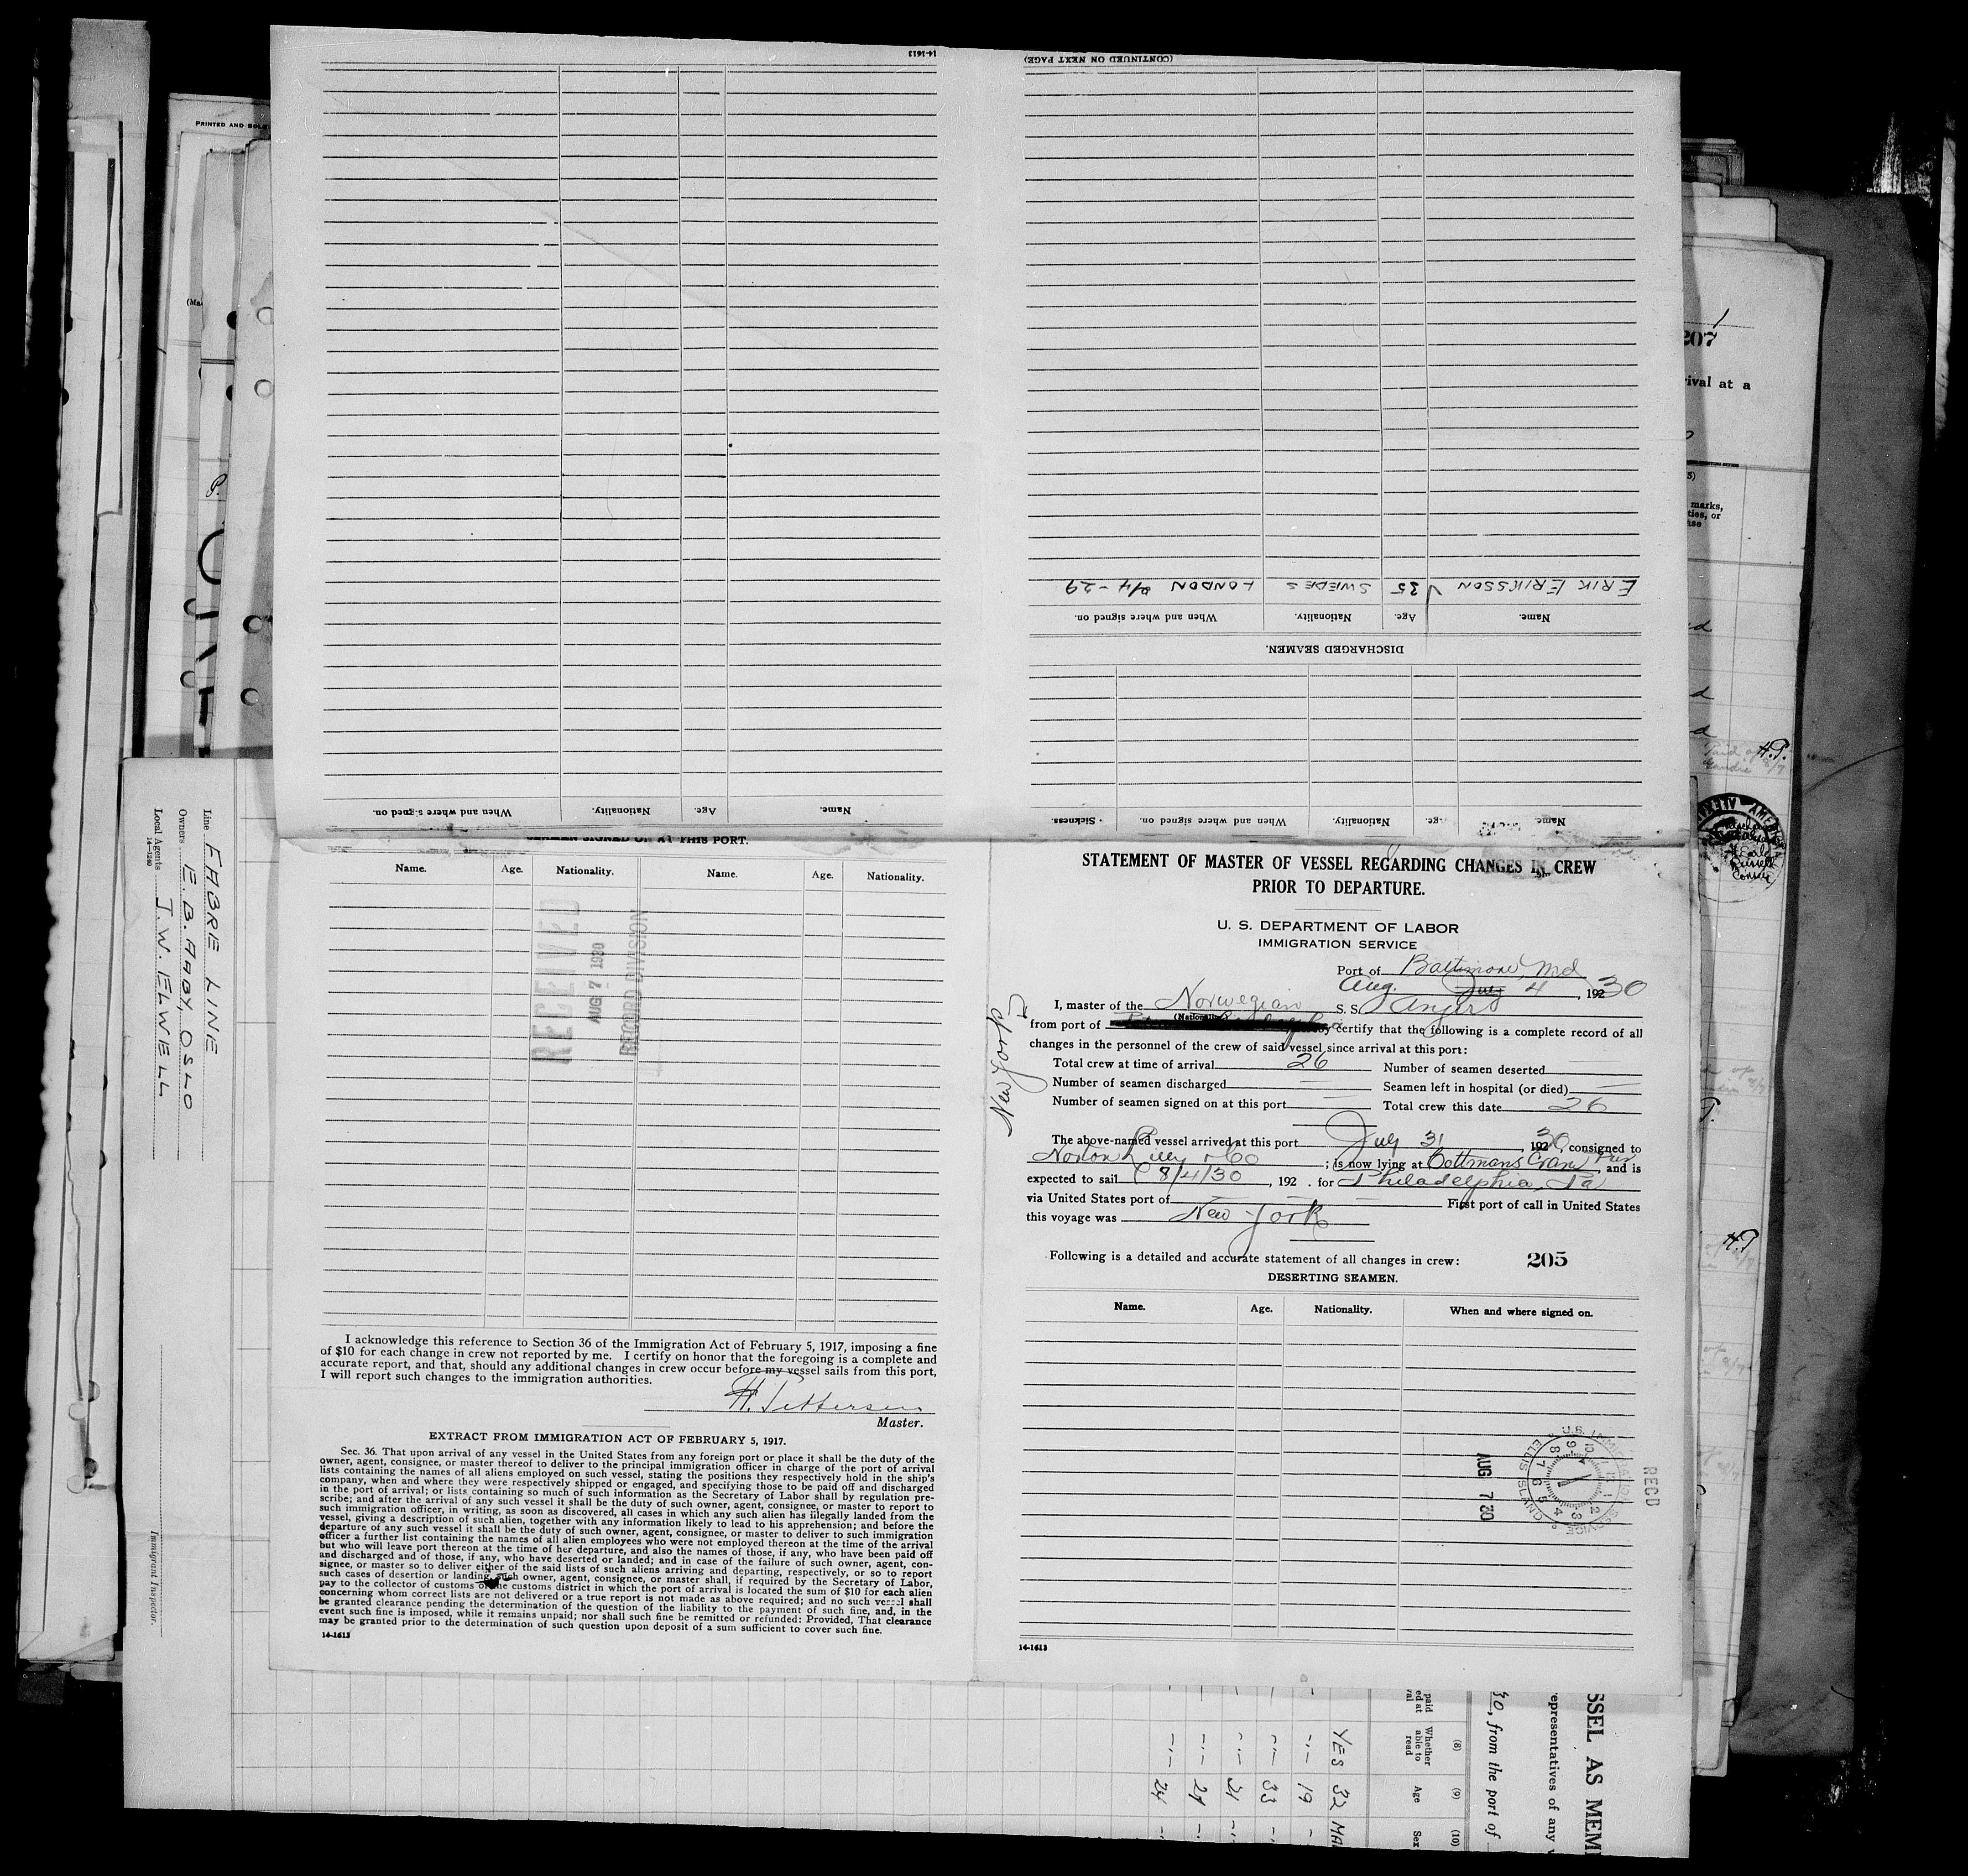 14-1613
(CONTINUED ON NEXT PAGE)
ERIK ERIKSSON 35 SWEDES LONDON 9/4-29
Name. Age. Nationality. When and where signed on.
DISCHARGED SEAMEN.
Name. Age. Nationality. When and where signed on. Sickness.
Name. Age. Nationality. When and where signed on.
THIS PORT.
Name. Age. Nationality. Name. Age. Nationality.
RECEIVED
AUG 7 1930
RECORD DIVISION
I acknowledge this reference to Section 36 of the Immigration Act of February 5, 1917, imposing a fine
of $10 for each change in crew not reported by me. I certify on honor that the foregoing is a complete and
accurate report, and that, should any additional changes in crew occur before my vessel sails from this port,
I will report such changes to the immigration authorities.
H. Pettersen
Master.
EXTRACT FROM IMMIGRATION ACT OF FEBRUARY 5, 1917.
Sec. 36. That upon arrival of any vessel in the United States from any foreign port or place it shall be the duty of the
owner, agent, consignee, or master thereof to deliver to the principal immigration officer in charge of the port of arrival
lists containing the names of all aliens employed on such vessel, stating the positions they respectively hold in the ship's
company, when and where they were respectively shipped or engaged, and specifying those to be paid off and discharged
in the port of arrival; or lists containing so much of such information as the Secretary of Labor shall by regulation pre-
scribe; and after the arrival of any such vessel it shall be the duty of such owner, agent, consignee, or master to report to
such immigration officer, in writing, as soon as discovered, all cases in which any such alien has illegally landed from the
vessel, giving a description of such alien, together with any information likely to lead to his apprehension; and before the
departure of any such vessel it shall be the duty of such owner, agent, consignee, or master to deliver to such immigration
officer a further list containing the names of all alien employees who were not employed thereon at the time of the arrival
but who will leave port thereon at the time of her departure, and also the names of those, if any, who have been paid off
and discharged and of those, if any, who have deserted or landed; and in case of the failure of such owner, agent, con-
signee, or master so to deliver either of the said lists of such aliens arriving and departing, respectively, or so to report
such cases of desertion or landing, such owner, agent, consignee, or master shall, if required by the Secretary of Labor,
pay to the collector of customs of the customs district in which the port of arrival is located the sum of $10 for each alien
concerning whom correct lists are not delivered or a true report is not made as above required; and no such vessel shall
be granted clearance pending the determination of the question of the liability to the payment of such fine, and, in the
event such fine is imposed, while it remains unpaid; nor shall such fine be remitted or refunded: Provided, That clearance
may be granted prior to the determination of such question upon deposit of a sum sufficient to cover such fine.
14-1613
STATEMENT OF MASTER OF VESSEL REGARDING CHANGES IN CREW
PRIOR TO DEPARTURE.
U. S. DEPARTMENT OF LABOR
IMMIGRATION SERVICE
Port of Baltimore, Md
Aug. July 4, 1930
I, master of the Norwegian S. S.
(Nationality)
from port of certify that the following is a complete record of all
New York
changes in the personnel of the crew of said vessel since arrival at this port:
Total crew at time of arrival 26 Number of seamen deserted
Number of seamen discharged Seamen left in hospital (or died)
Number of seamen signed on at this port Total crew this date 26
The above-named vessel arrived at this port July 31, 1930, consigned to
Norton Lilly & Co; is now lying at Cottmans Pier, and is
expected to sail 8/4/30, 192 . for Philadelphia, Pa
via United States port of First port of call in United States
this voyage was New York
Following is a detailed and accurate statement of all changes in crew: 205
DESERTING SEAMEN.
Name. Age. Nationality. When and where signed on.
AUG 7 30
RECD
14-1613
Line FABRE LINE
Owners E. B. AABY, OSLO
Local Agents J. W. ELWELL
14-1240
Immigrant Inspector.
PRINTED AND SOLD
207
rival at a
marks,
H.P.
SSEL AS MEM
epresentatives of any
30, from the port of
(8) (9) (10)
Whether able to read Age Sex
YES 32 MA
19
33
21
24